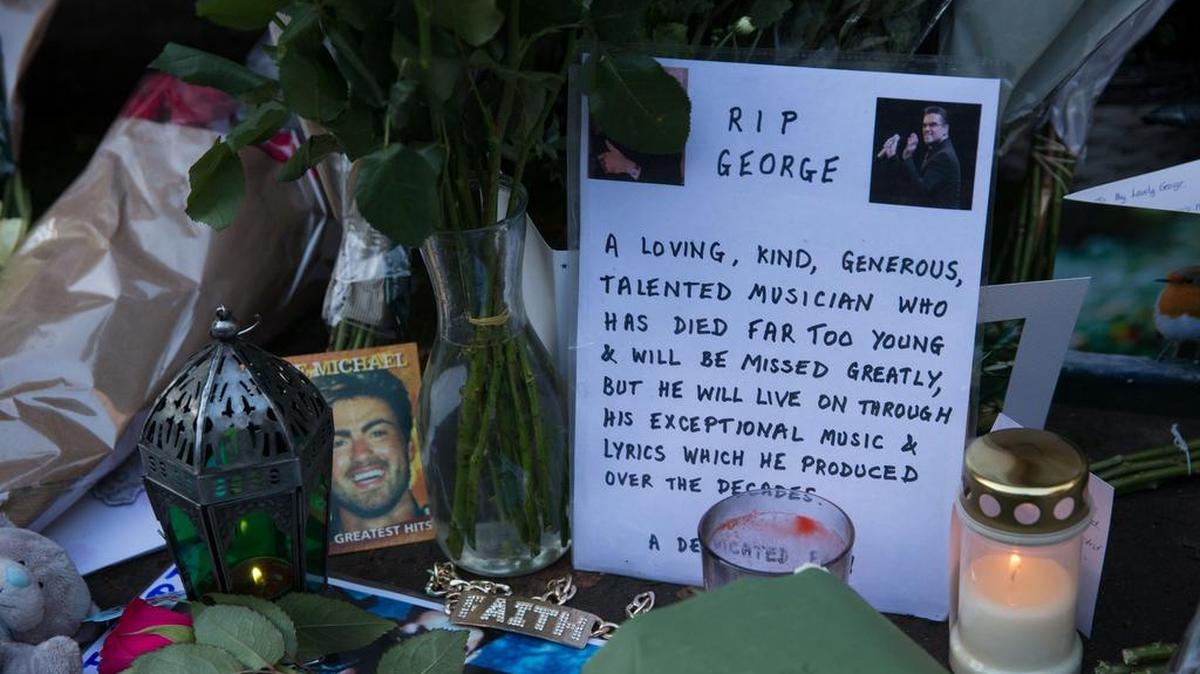 RIP
GEORGE
A LOVING, KIND, GENEROUS,
TALENTED MUSICIAN WHO
HAS DIED FAR TOO YOUNG
& WILL BE MISSED GREATLY,
BUT HE WILL LIVE ON THROUGH
HIS EXCEPTIONAL MUSIC &
LYRICS WHICH HE PRODUCED
OVER THE DECADES
A DEDICATED
To My Lovely George
E MICHAEL
GREATEST HITS
FAITH